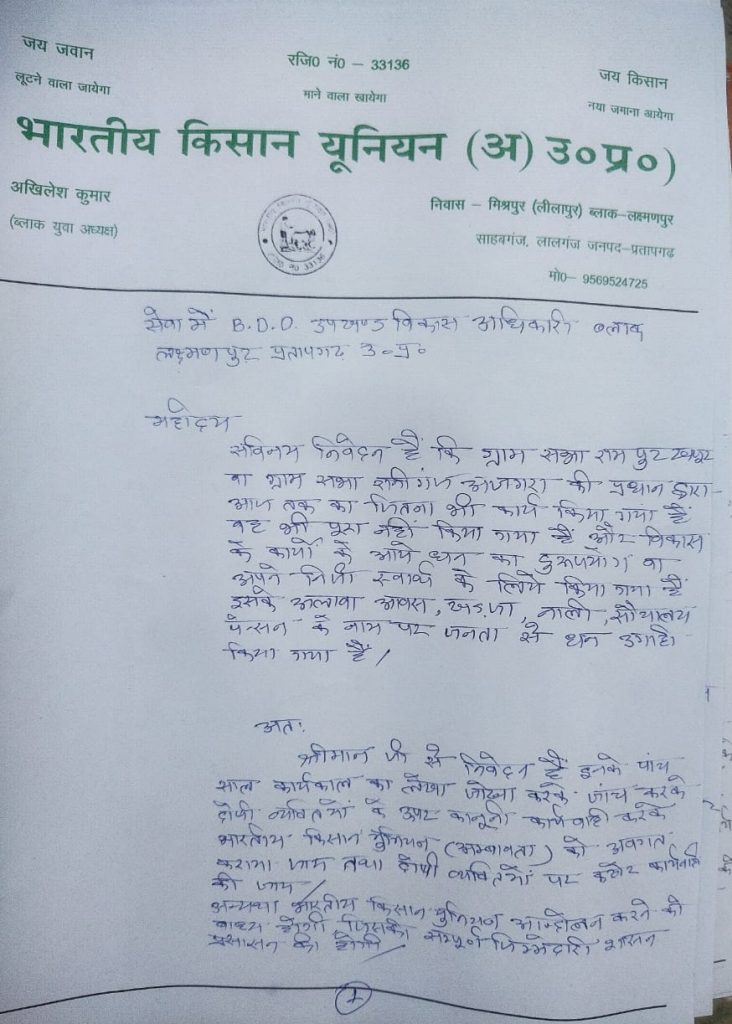 जय जवान
रजि0 नं0 – 33136
जय किसान
लूटने वाला जायेगा
माने वाला खायेगा
नया जमाना आयेगा
भारतीय किसान यूनियन (अ) उ०प्र०)
अखिलेश कुमार
(ब्लाक युवा अध्यक्ष)
निवास – मिश्रपुर (लीलापुर) ब्लाक–लक्ष्मणपुर
साहबगंज, लालगंज जनपद–प्रतापगढ़
मो0– 9569524725
सेवा में B.D.O. उपखण्ड विकास अधिकारी ब्लाक
लक्ष्मणपुर प्रतापगढ़ उ०प्र०
महोदय
सविनय निवेदन है कि ग्राम सभा राम पुर
वा ग्राम सभा अजगरा की प्रधान द्वारा
आज तक का जितना भी कार्य किया गया है
वह भी पूरा नहीं किया गया है और विकास
के कार्यो के आये धन का दुरूपयोग वा
अपने निजी स्वार्थ के लिये किया गया है
इसके अलावा आवास, खड़ंजा, नाली, सौचालय
पेन्सन के नाम पर जनता से धन उगाही
किया गया है/
अतः
श्रीमान जी से निवेदन है इनके पांच
साल कार्यकाल का लेखा जोखा करके जांच करके
दोषी व्यक्तियों के उपर कानूनी कार्यवाही करके
भारतीय किसान युनियन (अम्बावता) को अवगत
कराया जाय तथा दोषी व्यक्तियों पर कठोर कार्यवाही
की जाय/
अन्यथा भारतीय किसान युनियन आन्दोलन करने को
बाध्य होगी जिसकी सम्पूर्ण जिम्मेदारी शासन
प्रसासन की होगी/
1